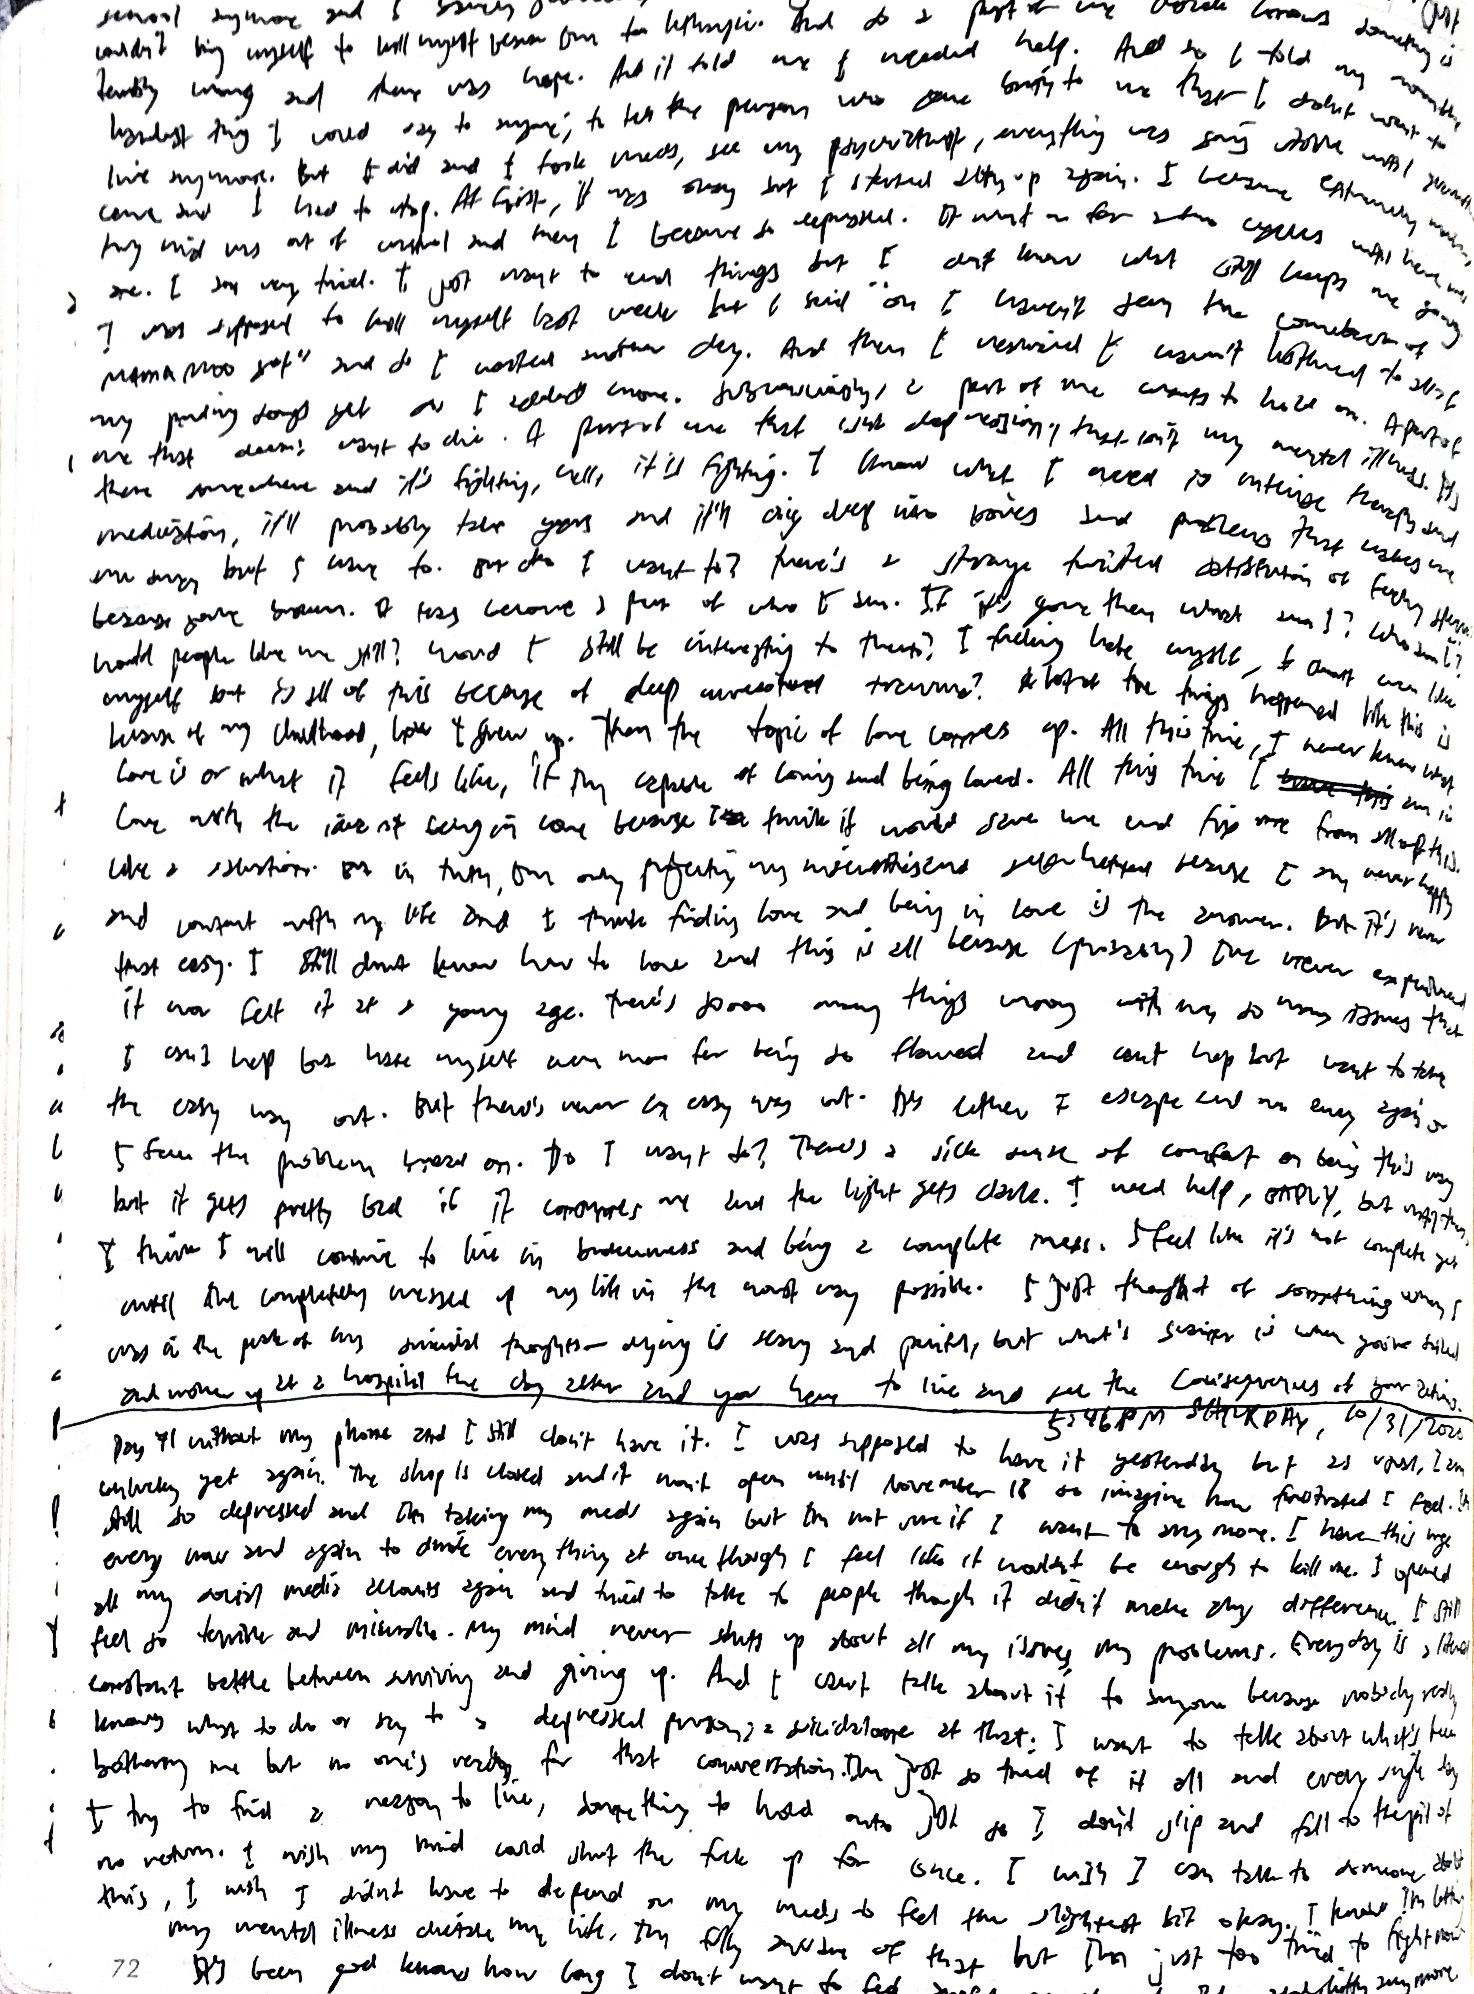 school anymore and I
couldn't bring myself to kill myself because I'm too lethargic. And so a part of me knows something is
terribly wrong and there was hope. And it told me I needed help. And so I told my mom the
hardest thing I could say to anyone; to tell the person who gave birth to me that I didn't want to
live anymore. But I did and I took meds, see my psychiatrist, everything was going until
came and I had to stop. At first, it was okay but I started acting up again. I became extremely
my mind was out of control and then I became so depressed. It went on for a few cycles until here we
are. I am very tired. I just want to end things but I don't know what still keeps me going.
I was supposed to kill myself last week but I said "oh I haven't seen the comeback of
MAMAMOO yet" and so I waited another day. And then I realized I haven't listened to all of
my songs yet so I waited more. Subconsciously, a part of me wants to hold on. A part of
me that doesn't want to die. A part of me that isn't depressing, that isn't my mental illness. It's
there somewhere and it's fighting, well, it is fighting. I know what I need is intense therapy and
medication, it'll probably take years and it'll dig deep into bones and problems that makes me
me angry but I have to. But do I want to? There's a strange twisted satisfaction of feeling
because you're broken. It has become a part of who I am. If it's gone then what am I? Who am I?
Would people like me still? Would I still be interesting to them? I fucking hate myself, I don't even like
myself but is all of this because of deep unresolved trauma? A lot of the things happened like this is
because of my childhood, how I grew up. Then the topic of love comes up. All this time, I never knew what
love is or what it feels like, if I'm capable of loving and being loved. All this time I am in
love with the idea of being in love because I think it would save me and fix me from all of this.
Like a solution. But in truth, I'm only projecting my self hatred because I am never happy
and content with my life and I think finding love and being in love is the answer. But it's never
that easy. I still don't know how to love and this is all because (probably) I've never experienced
it nor felt it at a young age. There's soooo many things wrong with me, so many issues that
I can't help but hate myself even more for being so flawed and can't help but want to take
the easy way out. But there's never an easy way out. It's either I escape and run away again or
I face the problem head on. Do I want to? There's a sick sense of comfort on being this way
but it gets pretty bad if it consumes me and the light gets dark. I need help, BADLY, but until then,
I think I will continue to live in brokenness and being a complete mess. I feel like it's not complete yet
until I've completely messed up my life in the worst way possible. I just thought of something when I
was in the peak of my suicidal thoughts— dying is scary and painful, but what's scarier is when you've failed
and woken up at a hospital the day after and you have to live and see the consequences of your actions.
5:46PM SATURDAY, 10/31/2020
Day 41 without my phone and I still don't have it. I was supposed to have it yesterday but as usual, I am
unlucky yet again. The shop is closed and it won't open until November 18 so imagine how frustrated I feel. I'm
still so depressed and I'm taking my meds again but I'm not sure if I want to anymore. I have this urge
every now and again to drink everything at once though I feel like it wouldn't be enough to kill me. I opened
all my social media accounts again and tried to talk to people though it didn't make any difference. I still
feel so terrible and miserable. My mind never shuts up about all my issues, my problems. Everyday is a literal
constant battle between surviving and giving up. And I can't talk about it to anyone because nobody really
knows what to do or say to a depressed person; a suicidal one at that. I want to talk about what's been
bothering me but no one's ready for that conversation. I'm just so tired of it all and every single day
I try to find a reason to live, something to hold onto just so I don't slip and fall to the pit of
no return. I wish my mind could shut the fuck up for once. I wish I can talk to someone about
this, I wish I didn't have to depend on my meds to feel the slightest bit okay. I know I'm letting
my mental illness dictate my life, I'm fully aware of that but I'm just too tired to fight now
72 It's been god knows how long I don't want to feel anymore